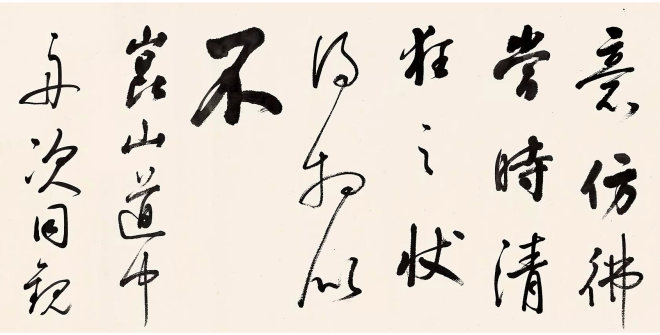 意仿彿
當時清
狂之狀
得相似
不
崑山道中
舟次同觀